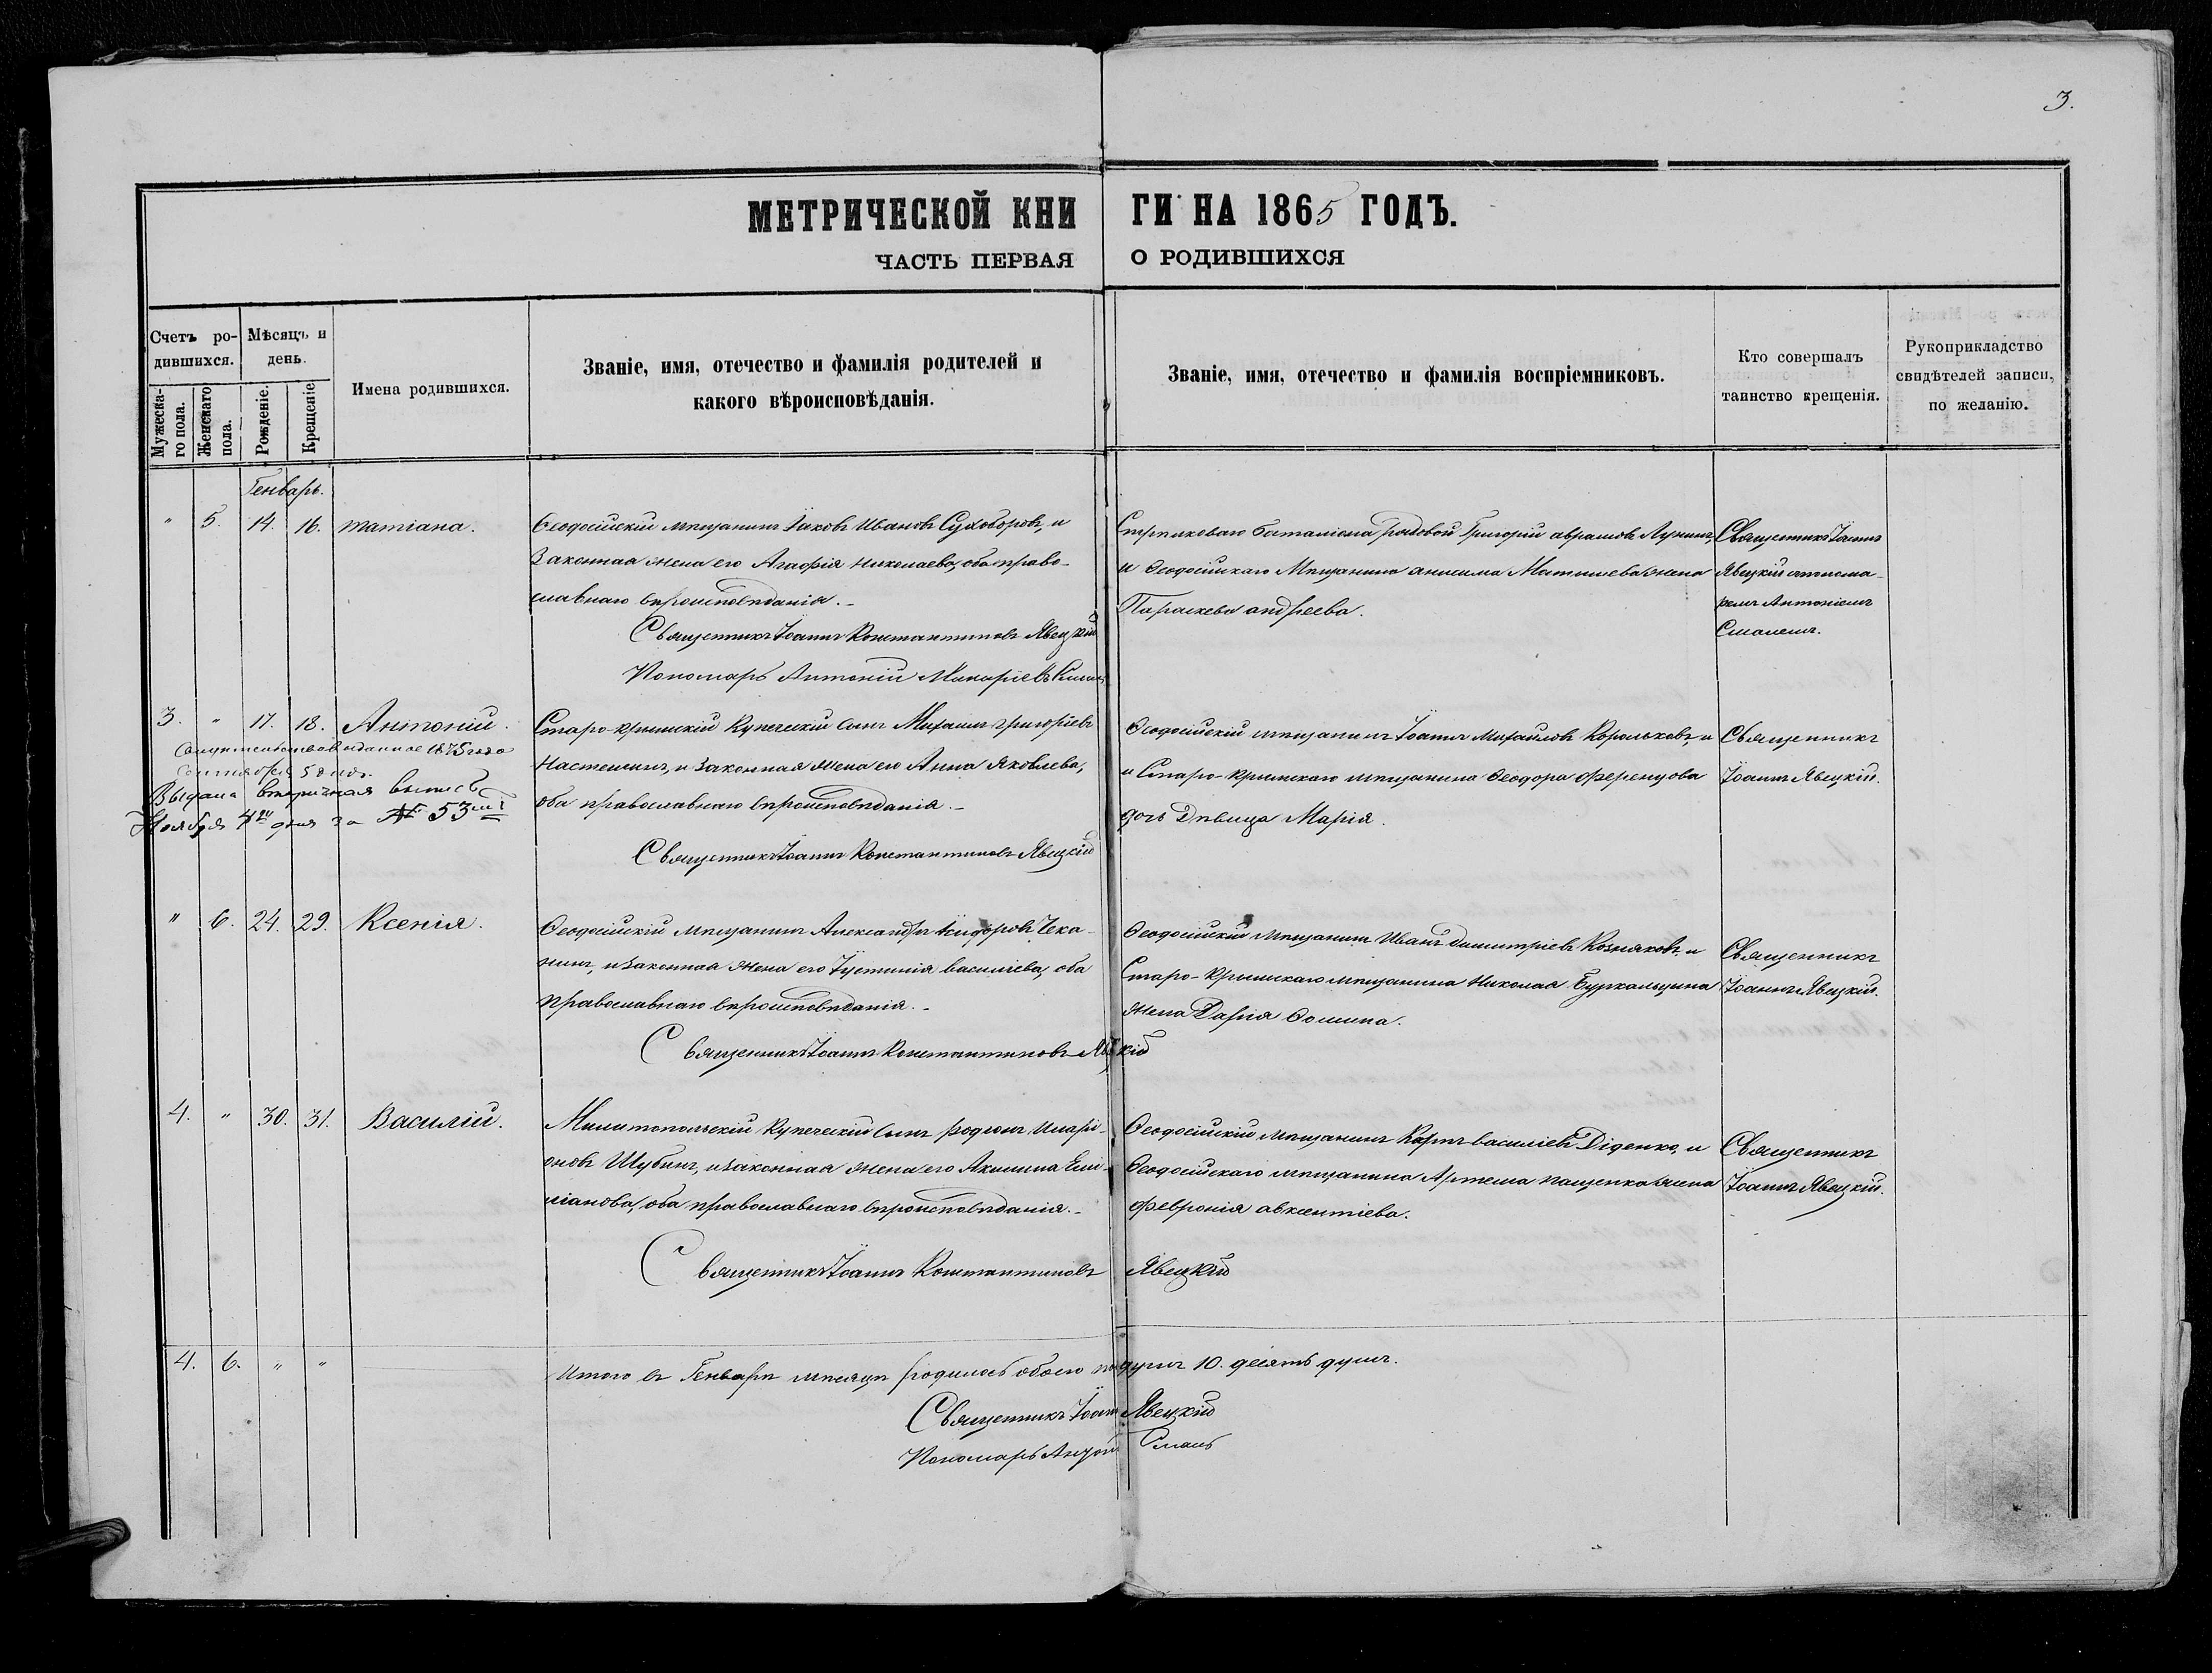 3.
МЕТРИЧЕСКОЙ КНИГИ НА 1865 ГОДЪ.
ЧАСТЬ ПЕРВАЯ О РОДИВШИХСЯ
Счетъ родившихся.
Мужескаго пола.
Женскаго пола.
Мѣсяцъ и день.
Рожденіе.
Крещеніе.
Имена родившихся.
Званіе, имя, отечество и фамилія родителей и
какого вѣроисповѣданія.
Званіе, имя, отечество и фамилія воспріемниковъ.
Кто совершалъ
таинство крещенія.
Рукоприкладство
свидѣтелей записи,
по желанію.
Генварь.
" 5. 14. 16. Татіана.
Ѳеодосійскій мѣщанинъ Іаковъ Ивановъ Суховоровъ, и
Законная жена его Агафія Николаева, оба право-
славнаго вѣроисповѣданія.-
Священникъ Іоаннъ Константиновъ Явецкій
Пономарь Антоній Макаріевъ
Стрѣлковаго баталіона рядовой Григорій аврамовъ Лунинъ,
и Ѳеодосійскаго Мѣщанина анисима жена
Параскева андреева.
Священникъ Іоаннъ
Явецкій съ понома-
ремъ Антоніемъ
Смалемъ.
3. " 17. 18. Антоній.
1875 года
Сентября 5 дня.
Выдана вторичная выпись
Ноября 4го дня за № 53мъ
Старо-крымскій Купеческій сынъ Михаилъ григоріевъ
Настенинъ, и законная жена его Анна Яковлева,
оба православнаго вѣроисповѣданія.-
Священникъ Іоаннъ Константиновъ Явецкій
Ѳеодосійскій мѣщанинъ Іоаннъ Михаиловъ Корольковъ, и
и Старо-Крымскаго мѣщанина Ѳеодора Ференцова
дочь Дѣвица Марія.
Священникъ
Іоаннъ Явецкій.
" 6. 24. 29. Ксенія.
Ѳеодосійскій мѣщанинъ Александръ Чека-
нинъ, и законная жена его Іустинія василіева, оба
православнаго вѣроисповѣданія.-
Священникъ Іоаннъ Константиновъ Явецкій
Ѳеодосійскій мѣщанинъ Иванъ димитріевъ Козняковъ, и
Старо-Крымскаго мѣщанина Николая
жена Дарія Ѳомина.
Священникъ
Іоаннъ Явецкій.
4. " 30. 31. Василій.
Мелитопольскій Купеческій сынъ родіонъ Иларі-
оновъ Шубинъ, и законная жена его Акилина Еми-
ліанова, оба православнаго вѣроисповѣданія.-
Священникъ Іоаннъ Константиновъ Явецкій
Ѳеодосійскій мѣщанинъ Карпъ василіевъ Діденко, и
Ѳеодосійскаго мѣщанина Артема пащенка жена
Февронія авксентіева.
Священникъ
Іоаннъ Явецкій.
4. 6. " "
Итого въ Генварѣ мѣсяцѣ родилось обоего душъ 10. десять душъ.
Священникъ Іоаннъ Явецкій
Пономарь Смаль